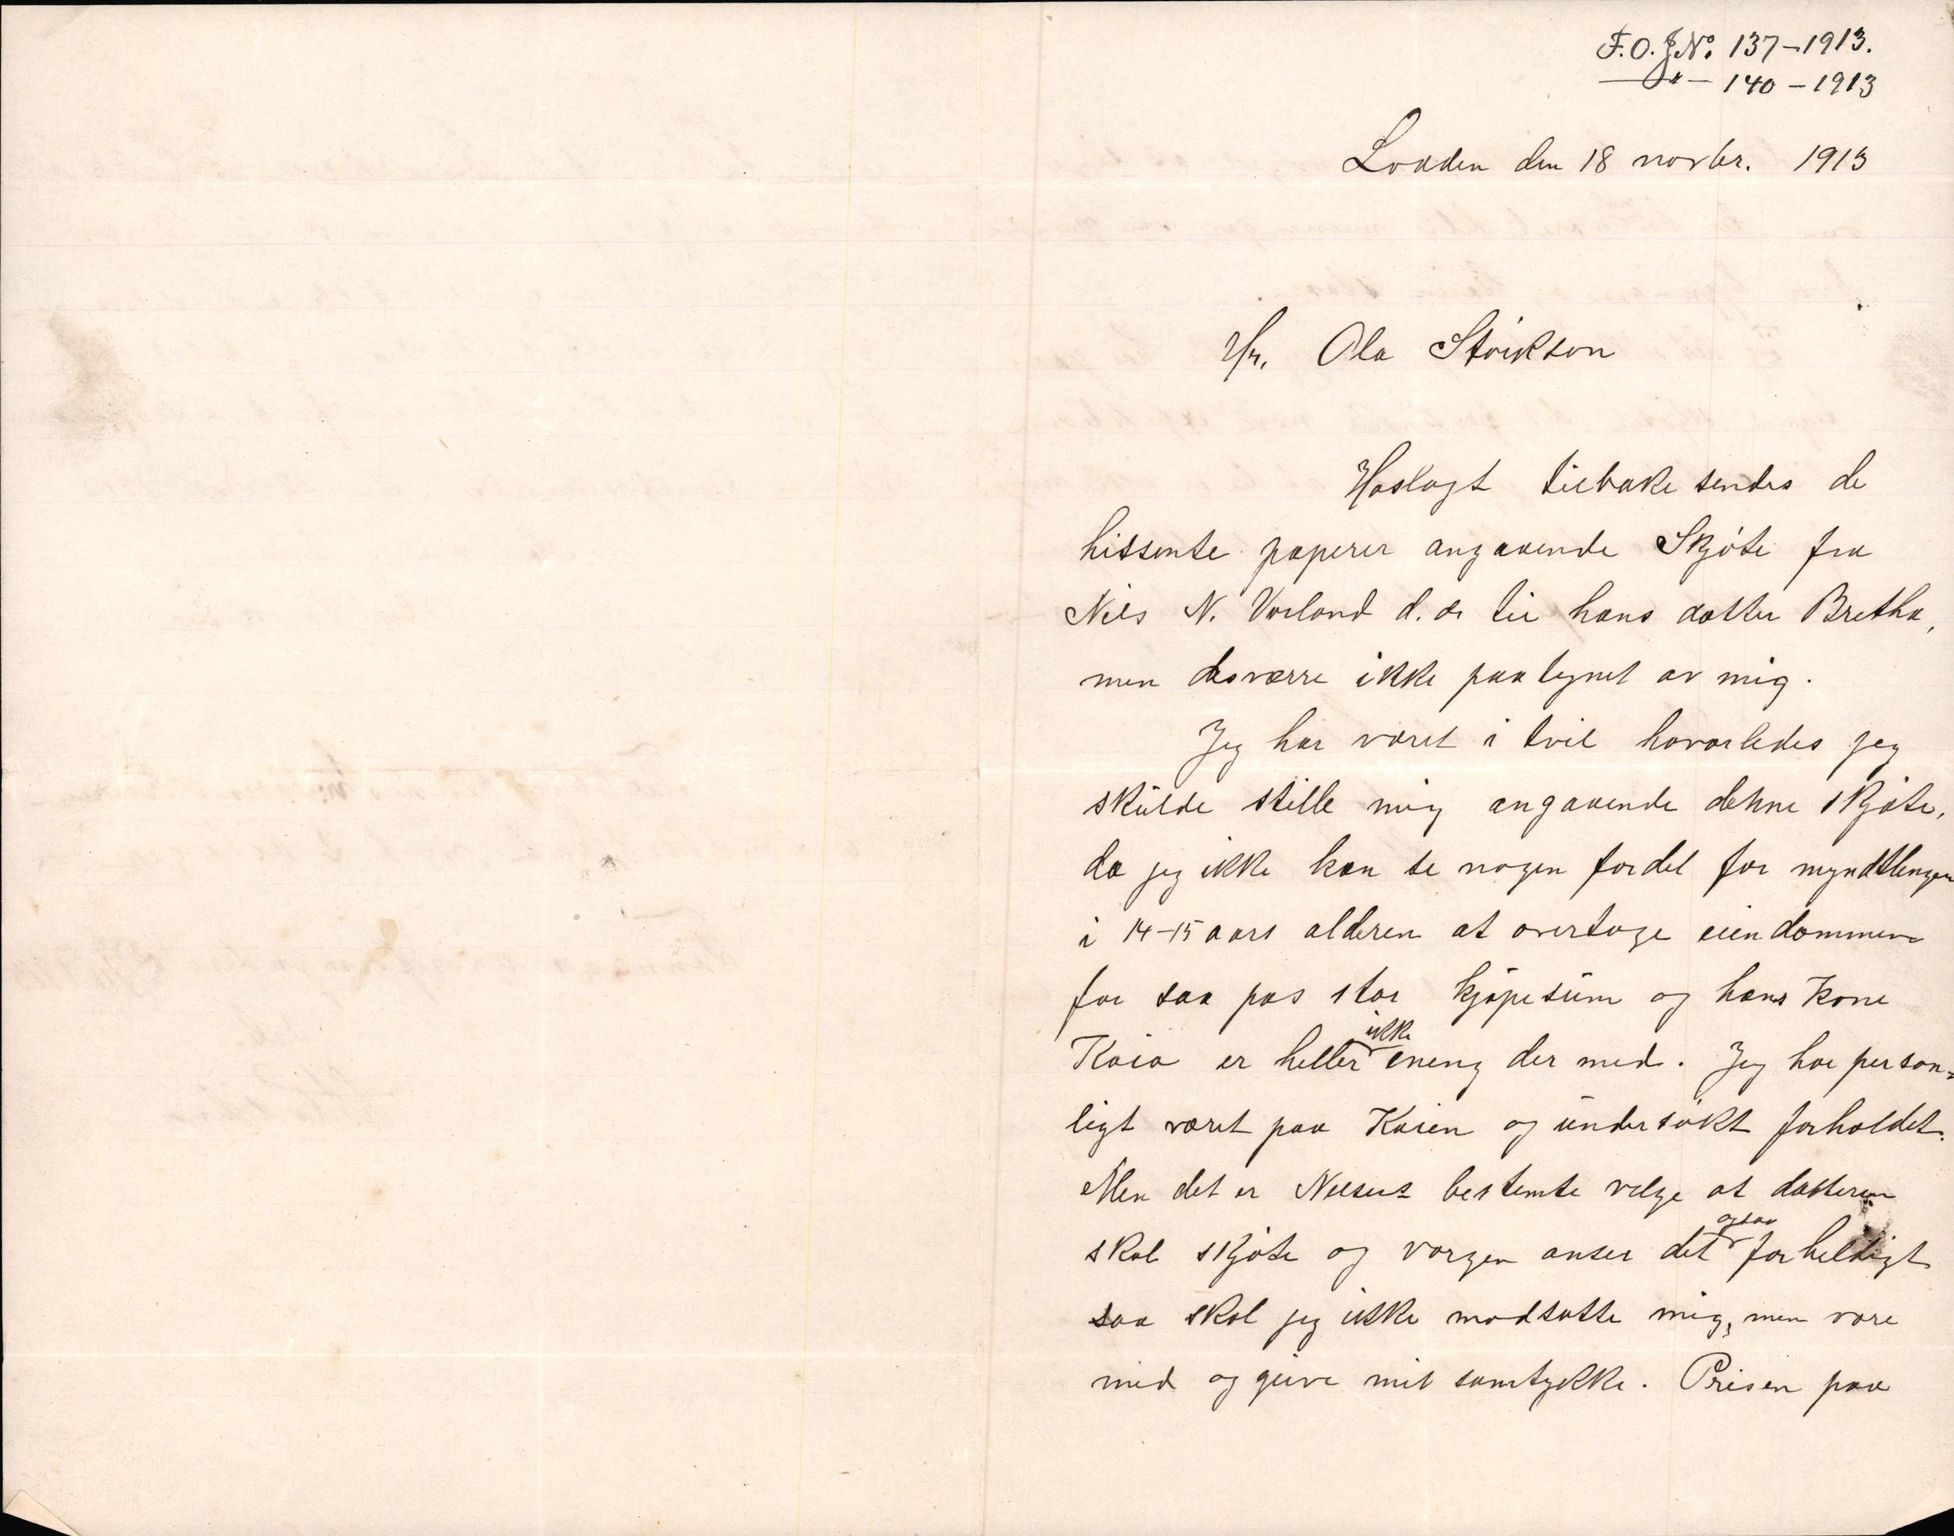 F.O.J.No. 137-1913.
—"— 140-1913
Lodden den 18 novbr. 1913
Hr. Ola Störkson
Hoslagt tilbake sendes de
hitsente papirer angaaende Skjöte fra
Nils N. Varland d.æ til hans datter Bretha,
men desværre ikke paategnet av mig.
Jeg har været i tvil hvorledes jeg
skulde stille mig angaaende dette skjöte,
da jeg ikke kan se nogen fordel for myndtlingen
i 14-15 aars alderen at overtage eiendommen
for saa pas stor kjöpesum og hans kone
Kaia er heller ikke eneng der med. Jeg har person-
ligt været paa Kaien og undersökt forholdet.
Men det er Nilsens bestemte vilge at datteren
skal skjöte og vorgen anser det ogsaa for heldigt
saa skal jeg ikke modsætte mig, men være
med og give mit samtykke. Prisen paa